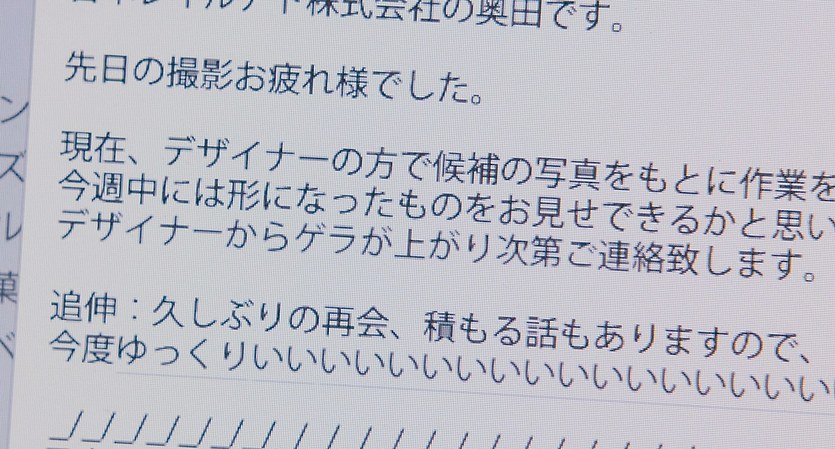 株式会社の奥田です。
先日の撮影お疲れ様でした。
現在、デザイナーの方で候補の写真をもとに作業を
今週中には形になったものをお見せできるかと思い
デザイナーからゲラが上がり次第ご連絡致します。
追伸：久しぶりの再会、積もる話もありますので、
今度ゆっくりいいいいいいいいいいいいいいいいい
_/_/_/_/_/_/_/_/_/_/_/_/_/_/_/_/_/_/_/
ン
ズ
ル
菓
ベ